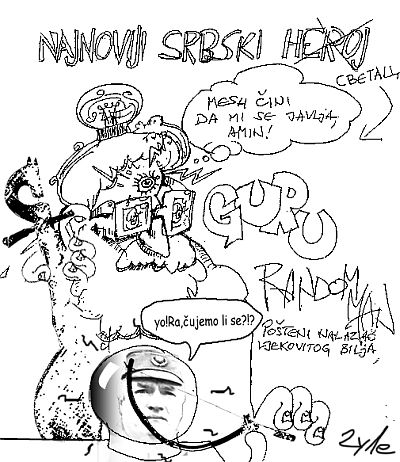 NAJNOVIJI SRBSKI HEROJ
СВЕТАЦ
MESH ČINI
DA MI SE JAVLJA,
AMIN!
GURU
RANDOM
MAN
POŠTENI NALAZAČ
LJEKOVITOG BILJA,
yo!Ra,čujemo li se?!?
Zyle